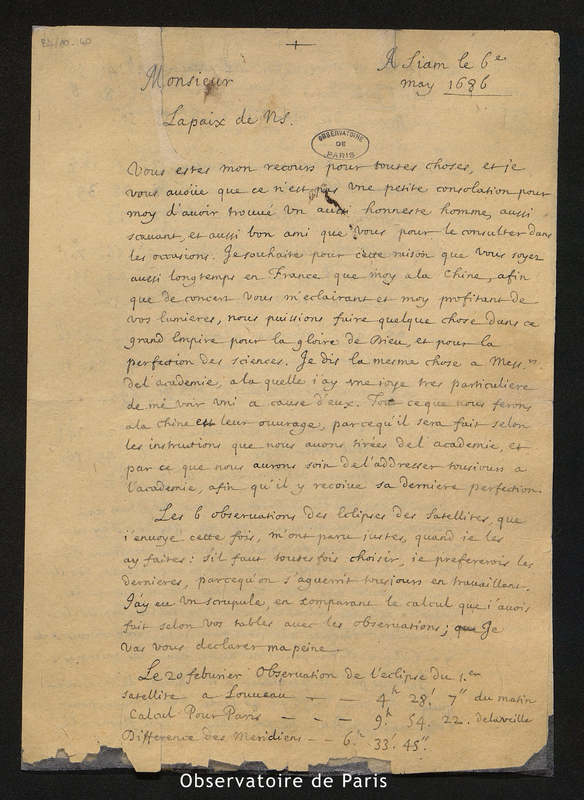 A Siam le 6e
may 1686
Monsieur
Lapaix de Ns.
OBSERVATOIRE
DE
PARIS
Vous estes mon recours pour toutes choses, et je
vous auoüe que ce n'est pas vne petite consolation pour
moy d'auoir trouué vn aussi honneste homme, aussi
scauant, et aussi bon ami que vous pour le consulter dans
les occasions. Je souhaite pour cette raison que vous soyez
aussi longtemps en France que moy a la Chine, afin
que de concert vous m'eclairant et moy profitant de
vos lumieres, nous puissions faire quelque chose dans ce
grand Empire pour la gloire de Dieu, et pour la
perfection des sciences. Je dis la mesme chose a Mess.rs
del'academie, a la quelle i'ay vne ioye tres particuliere
de me voir vni a cause d'eux. Tout ce que nous ferons
a la Chine est leur ouvrage, parcequ'il sera fait selon
les instructions que nous auons tirées del'academie, et
par ce que nous aurons soin de l'addresser tousiours a
l'academie, afin qu'il y recoiue sa derniere perfection.
Les 6 observations des Eclipses des Satellites, que
i'enuoye cette fois, m'ont paru justes, quand ie les
ay faites: s'il faut toutesfois choisir, ie prefererois les
dernieres, parcequ'on s'aguerrit tousjours en trauaillant.
J'ay eu vn scrupule, en comparant le calcul que i'auois
fait selon vos tables auec les observations; que Je
vas vous declarer ma peine.
Le 20 febvrier Observation de l'eclipse du 1.er
satellite a Louueau - - 4h 28' 7" du matin
Calcul Pour Paris - - - 9.h 54. 22. dela veille
Difference des Meridiens - - 6.h 33' 45".
Observatoire de Paris